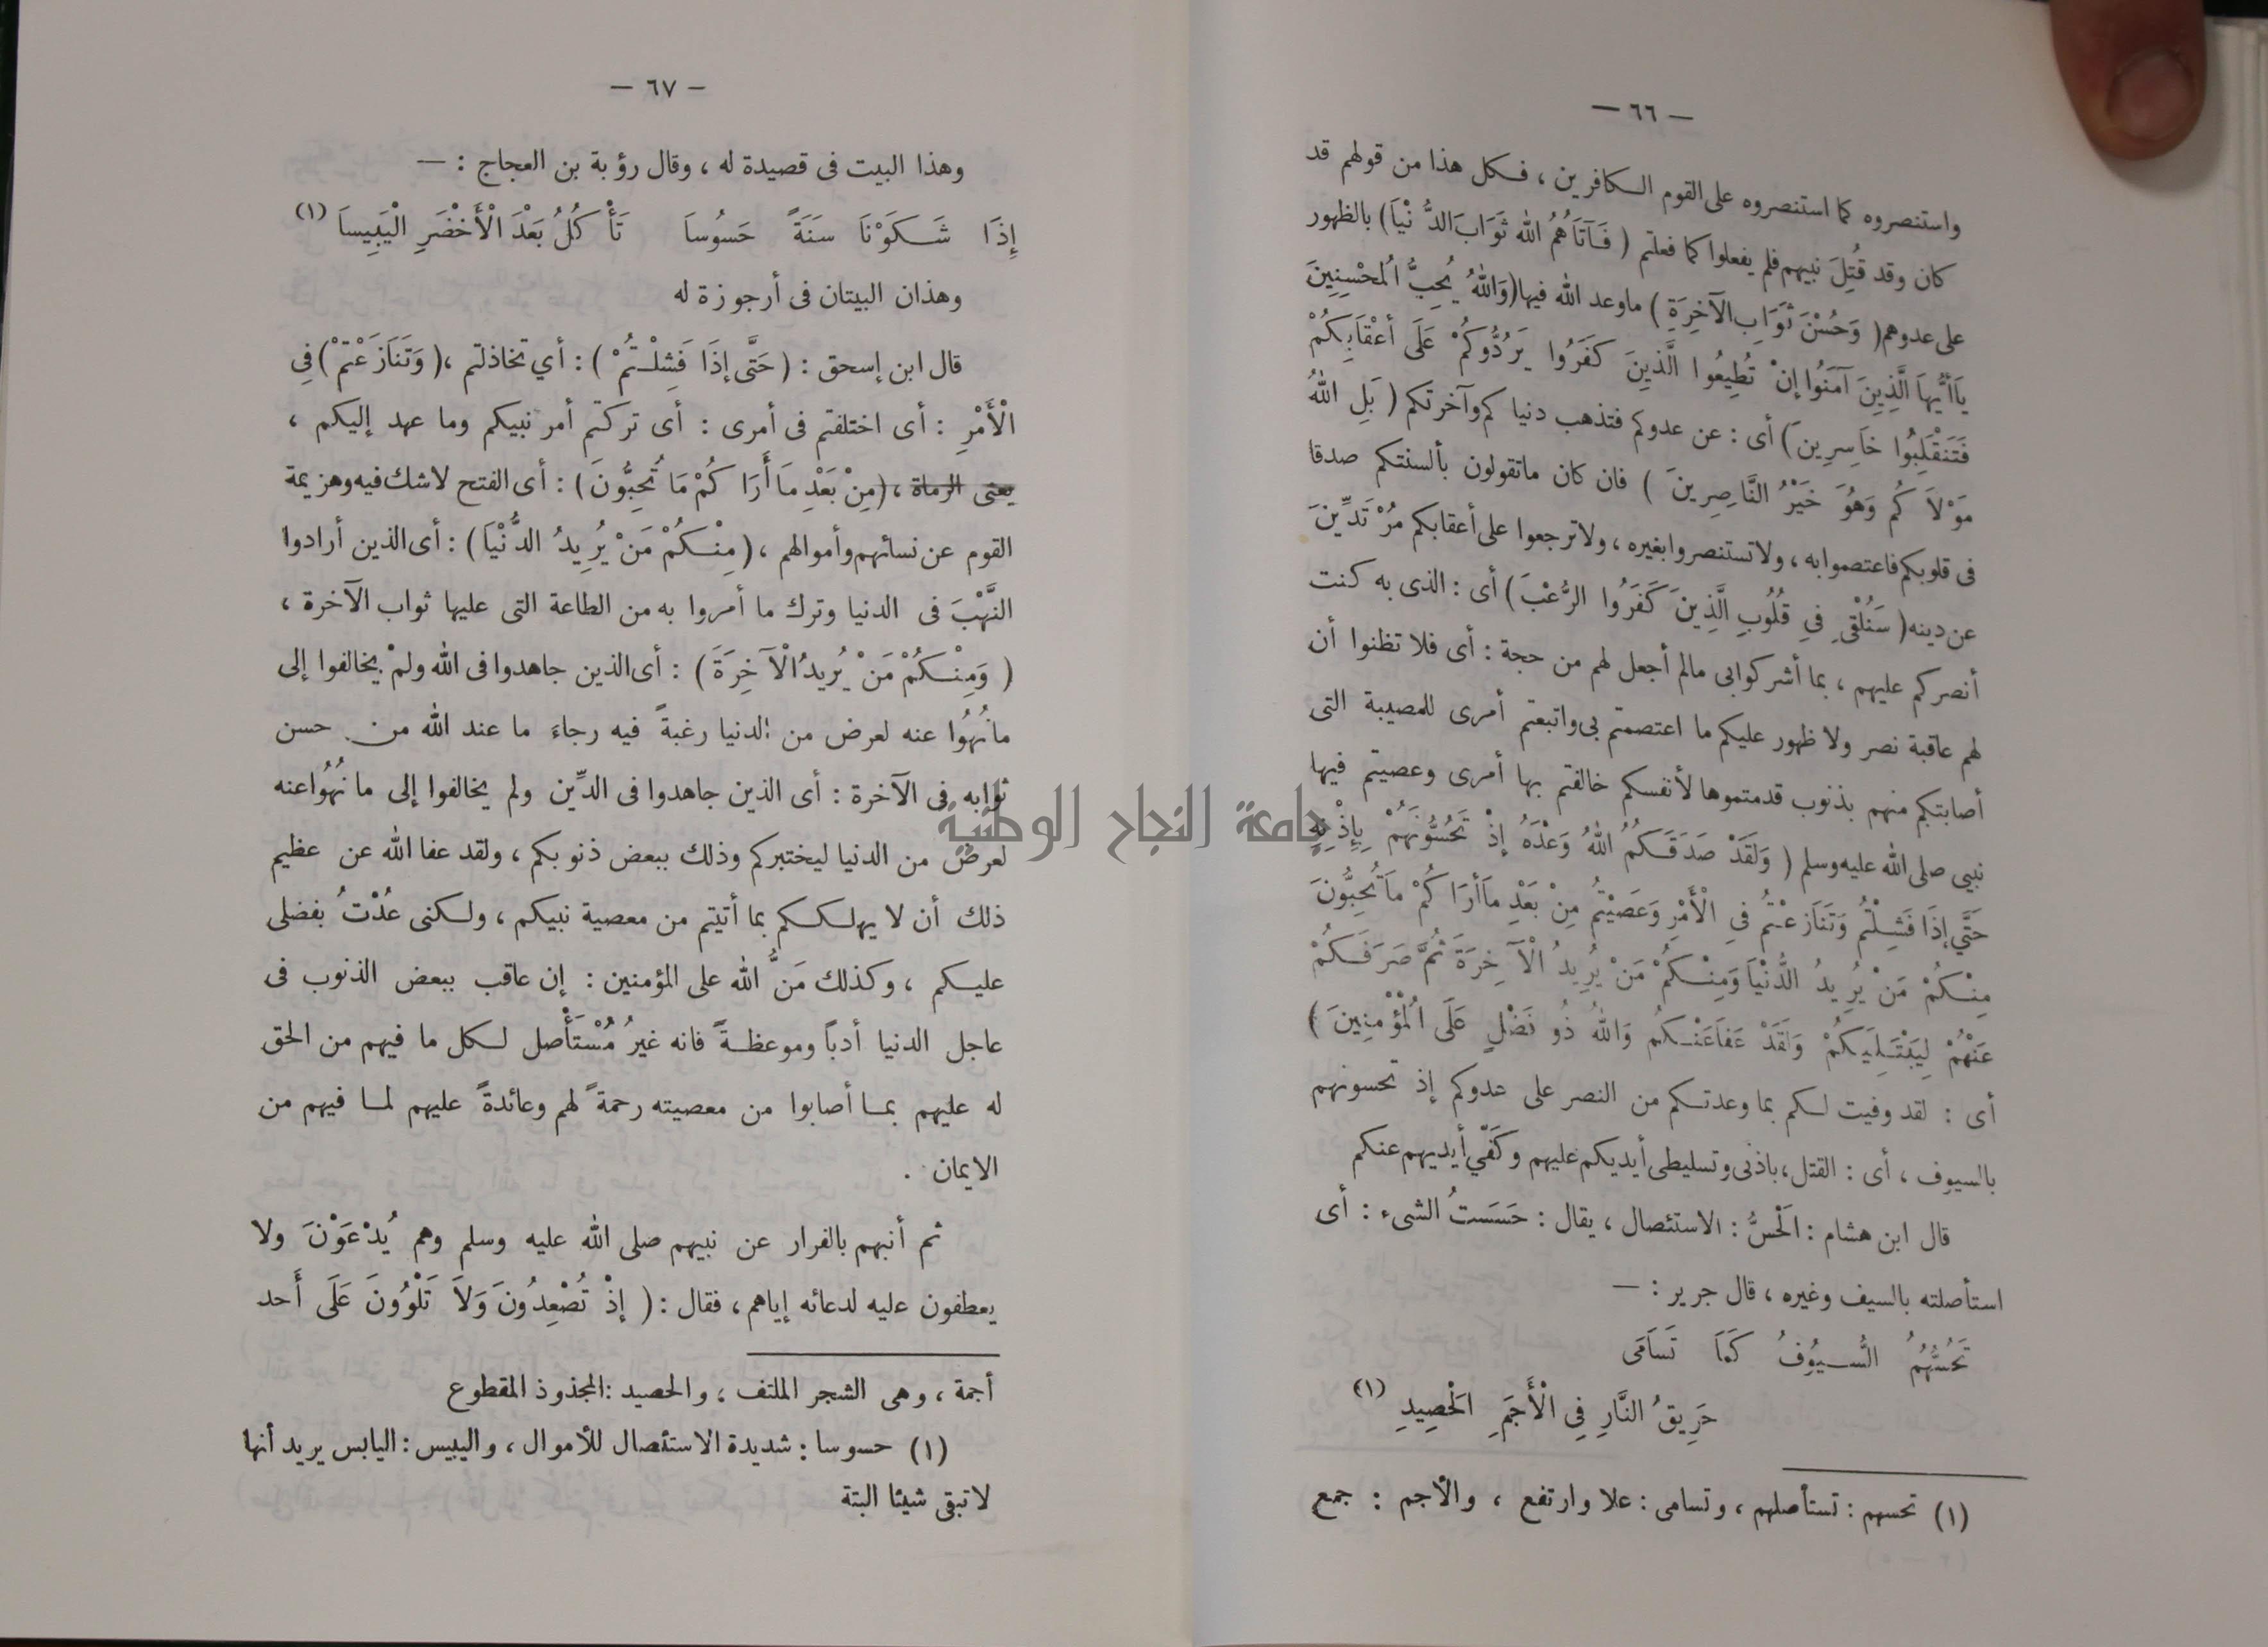 — ٦٦ —
واستنصروه كما استنصروه على القوم الكافرين ، فكل هذا من قولهم قد
كان وقد قُتِلَ نبيهم فلم يفعلوا كما فعلتم ( فَآتَاهُمُ الله ثَوَابَ الدُّنْيَا ) بالظهور
على عدوهم ( وَحُسْنَ ثَوَابِ الآخِرَةِ ) ماوعد الله فيها ( وَاللهُ يُحِبُّ الْمحْسِنِينَ
يَاأَيُّهاَ الَّذِينَ آمَنُوا إِنْ تُطِيعُوا الَّذِينَ كَفَرُوا يَرُدُّوكُمْ عَلَى أَعْقَابِكُمْ
فَتَنْقَلِبُوا خَاسِرِينَ ) أى : عن عدوكم فتذهب دنيا كم وآخرتكم ( بَلِ اللهُ
مَوْلاَ كُم وَهُوَ خَيْرُ النَّاصِرِينَ ) فان كان ماتقولون بألسنتكم صدقا
فى قلوبكم فاعتصموا به ، ولا تستنصروا بغيره ، ولا ترجعوا على أعقابكم مُرْتَدِّينَ
عن دينه ( سَنُلْقِى فِي قُلُوبِ الَّذِينَ كَفَرُوا الرُّعْبَ ) أى : الذى به كنت
أنصركم عليهم ، بما أشركوا بى مالم أجعل لهم من حجة : أى فلا تظنوا أن
لهم عاقبة نصر ولا ظهور عليكم ما اعتصمتم بى واتبعتم أمرى للمصيبة التى
أصابتكم منهم بذنوب قدمتموها لأنفسكم خالفتم بها أمرى وعصيتم فيها
نبيى صلى الله عليه وسلم ( وَلَقَدْ صَدَقَكُمُ اللهُ وَعْدَهُ إِذْ تَحُسُّونَهُمْ بِإِذْنِهِ
حَتَّى إِذَا فَشِلْتُم وَتَنَازَعْتُم فِي الْأَمْرِ وَعَصَيْتُم مِنْ بَعْدِ مَاأَرَا كُمْ مَاتُحِبُّونَ
مِنْكُمْ مَنْ يُرِيدُ الدُّنْيَا وَمِنْكُمْ مَنْ يُرِيدُ الْآخِرَةَ ثُمَّ صَرَفَكُمْ
عَنْهُمْ لِيَبْتَلِيَكُمْ وَلَقَدْ عَفَاعَنْكُم وَاللهُ ذُو فَضْلٍ عَلَى الْمُؤْمِنِينَ )
أى : لقد وفيت لكم بما وعدتكم من النصر على عدوكم إذ تحسونهم
بالسيوف ، أى : القتل ، باذنى وتسليطى أيديكم عليهم وكَفِّي أيديهم عنكم
قال ابن هشام : الْحَسُّ : الاستئصال ، يقال : حَسَسْتُ الشىء : أى
استأصلته بالسيف وغيره ، قال جرير : —
تَحُسُّهُمُ السُّيُوفُ كَمَا تَسَامَى
حَرِيقُ النَّارِ فِي الْأَجَمِ الْحَصِيدِ (١)
(١) تحسهم : تستأصلهم ، وتسامى : علا وارتفع ، والأجم : جمع
— ٦٧ —
وهذا البيت فى قصيدة له ، وقال رؤبة بن العجاج : —
إِذَا شَكَوْنَا سَنَةً حَسُوسَا تَأْكُلُ بَعْدَ الْأَخْضَرِ الْيَبِيسَا (١)
وهذان البيتان فى أرجوزة له
قال ابن إسحق : ( حَتَّى إِذَا فَشِلْتُمْ ) : أي تخاذلتم ، ( وَتَنَازَعْتمْ ) فِي
الْأَمْرِ : أى اختلفتم فى أمرى : أى تركتم أمر نبيكم وما عهد إليكم ،
يعنى الرماة ، ( مِنْ بَعْدِ مَا أَرَا كُمْ مَا تُحِبُّونَ ) : أى الفتح لاشك فيه وهزيمة
القوم عن نسائهم وأموالهم ، ( مِنْكُمْ مَنْ يُرِيدُ الدُّنْيَا ) : أى الذين أرادوا
النَّهْبَ فى الدنيا وترك ما أمروا به من الطاعة التى عليها ثواب الآخرة ،
( وَمِنْكُمْ مَنْ يُرِيدُ الْآخِرَةَ ) : أى الذين جاهدوا فى الله ولمْ يخالفوا إلى
مانُهُوا عنه لعرض من الدنيا رغبةً فيه رجاءَ ما عند الله من حسن
ثوابه فى الآخرة : أى الذين جاهدوا فى الدِّين ولم يخالفوا إلى ما نُهُوا عنه
لعرض من الدنيا ليختبركم وذلك ببعض ذنوبكم ، ولقد عفا الله عن عظيم
ذلك أن لا يهلككم بما أتيتم من معصية نبيكم ، ولكنى عُدْتُ بفضلى
عليكم ، وكذلك مَنَّ الله على المؤمنين : إن عاقب ببعض الذنوب فى
عاجل الدنيا أدباً وموعظةً فانه غيرُ مُسْتَأْصل لكل ما فيهم من الحق
له عليهم بما أصابوا من معصيته رحمةً لهم وعائدةً عليهم لما فيهم من
الايمان .
ثم أنبهم بالفرار عن نبيهم صلى الله عليه وسلم وهم يُدْعَوْنَ ولا
يعطفون عليه لدعائه إياهم ، فقال : ( إِذْ تُصْعِدُونَ وَلاَ تَلْوُونَ عَلَى أَحد
أجمة ، وهى الشجر الملتف ، والحصيد : المجذوذ المقطوع
(١) حسوسا : شديدة الاستئصال للأموال ، واليبيس : اليابس يريد أنها
لا تبقى شيئا البتة
جامعة النجاح الوطنية